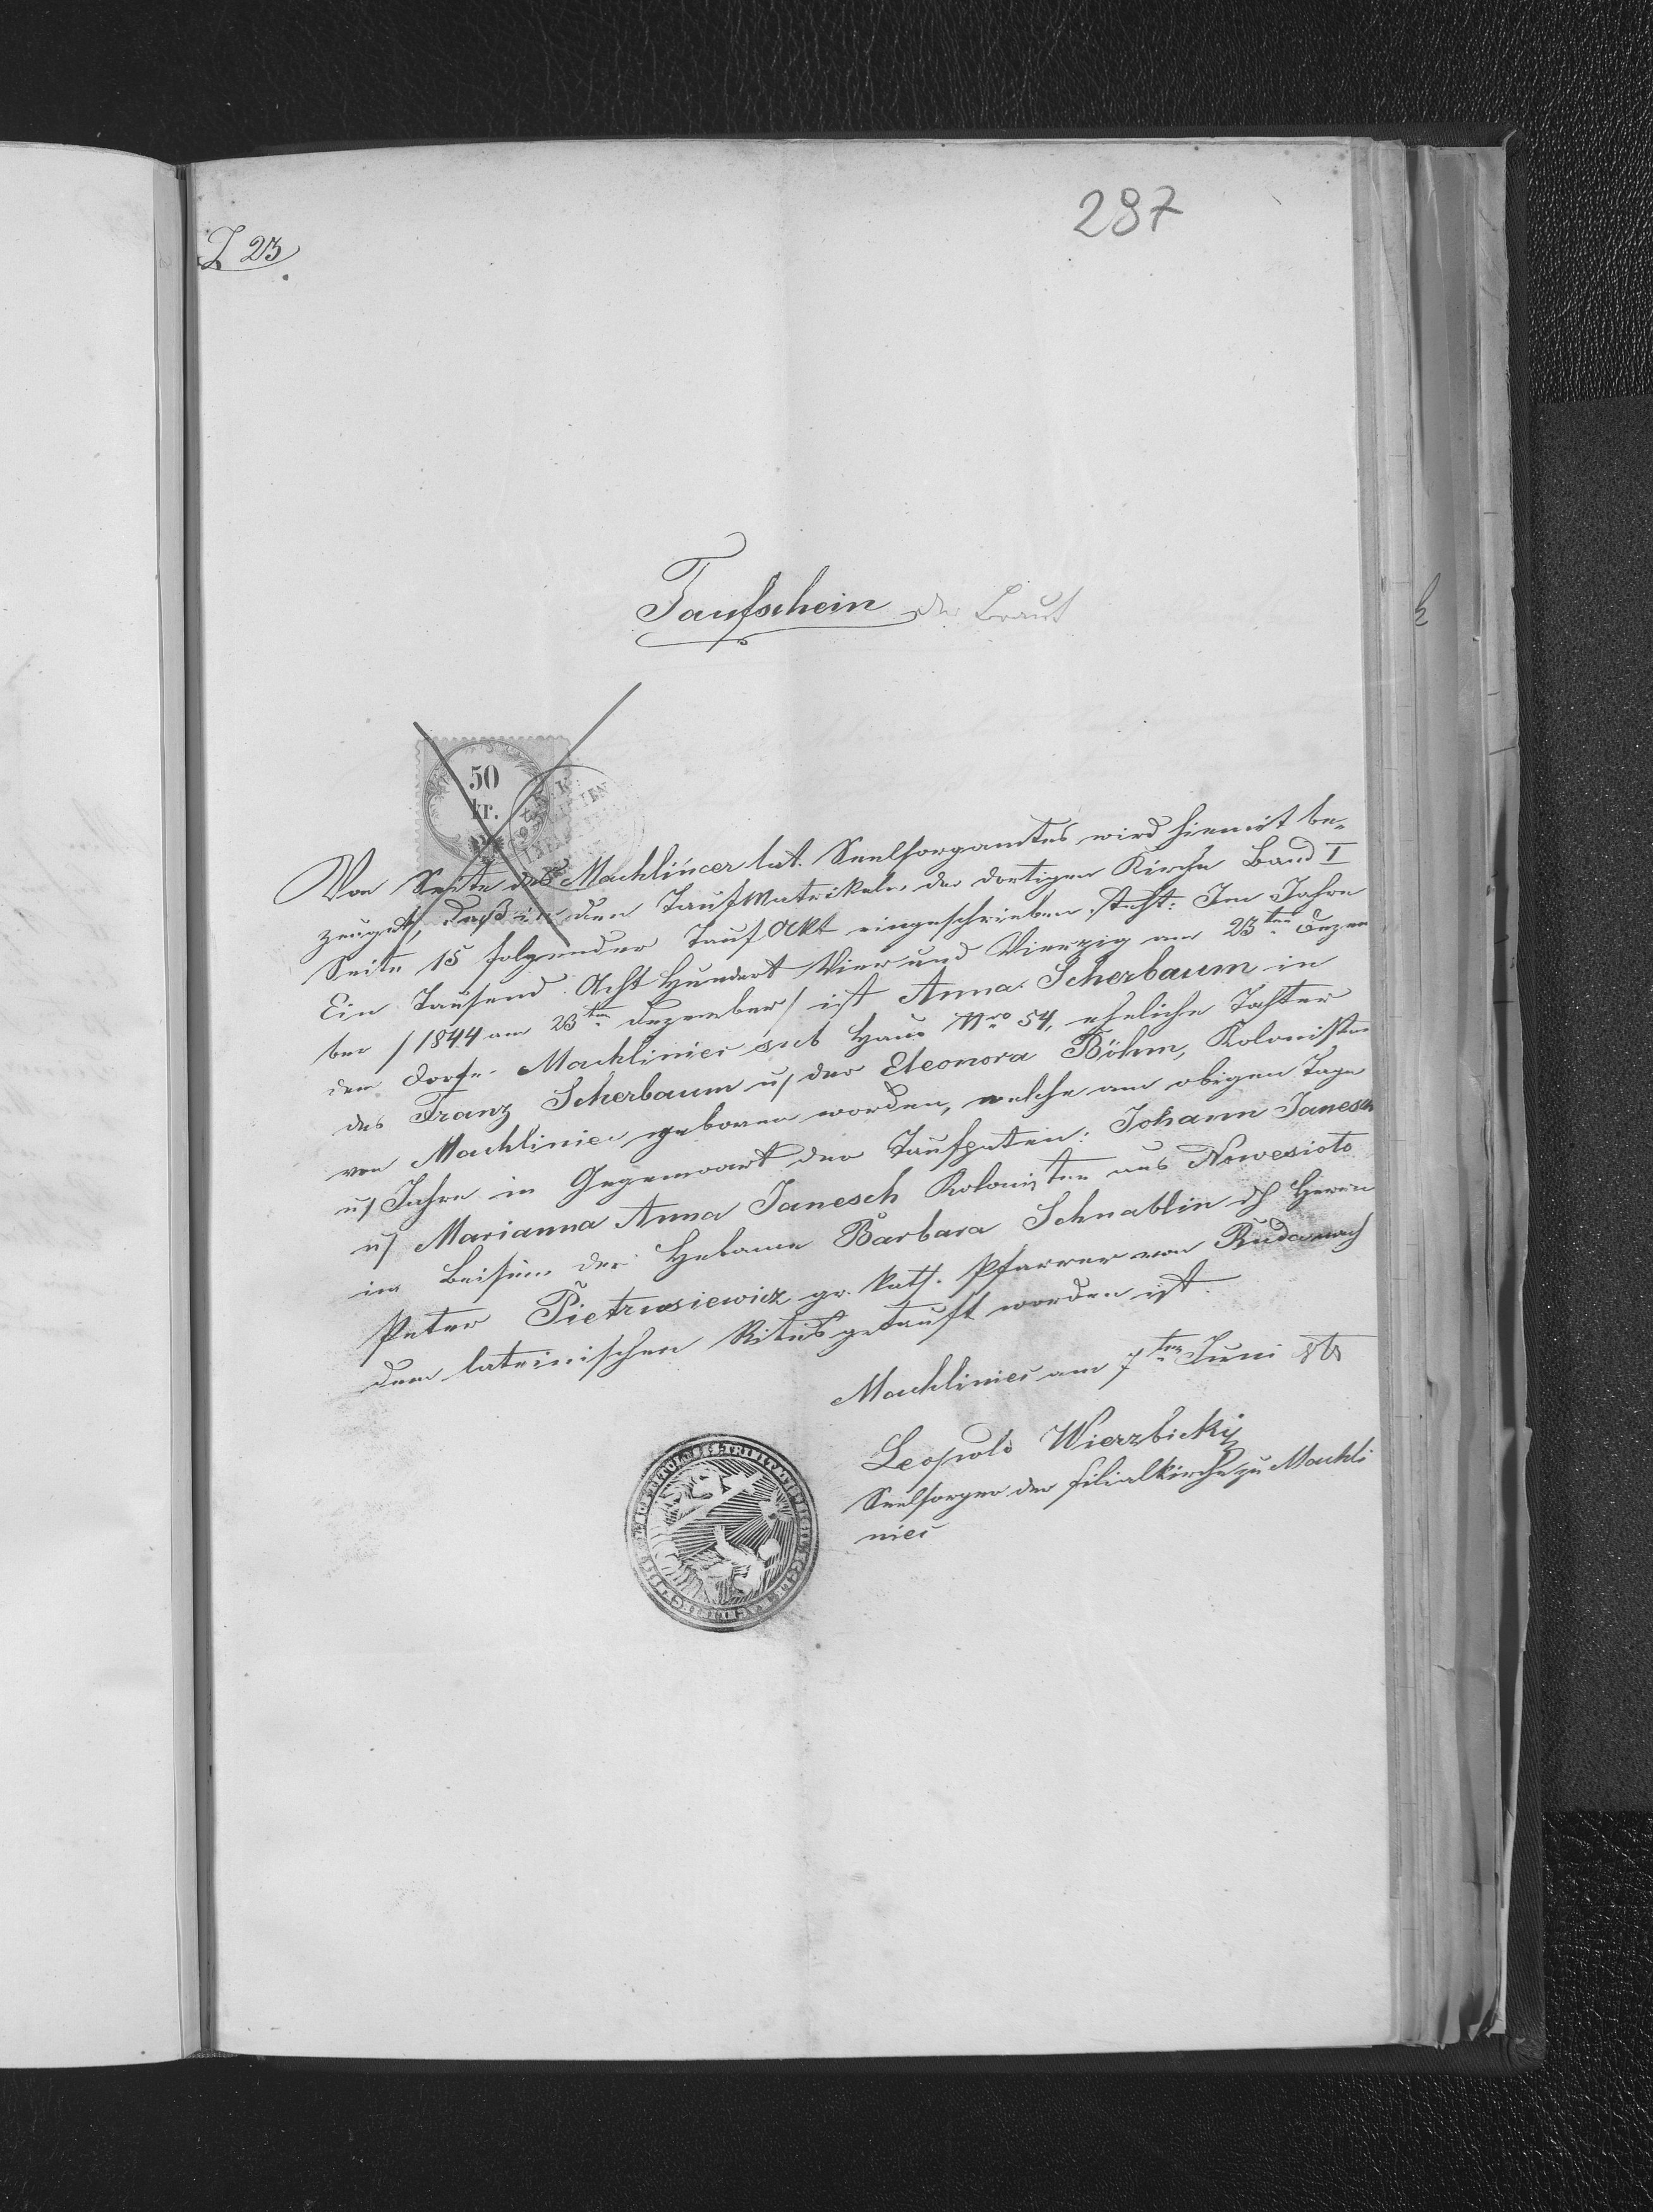 287
Z 23
Taufschein der Braut
50
kr.
Von Seite des Machlińcer lat. Seelsorgamtes wird hiemit be-
zeuget, daß in den Taufmatrikeln der dortigen Kirche Band I
Seite 15 folgender Tauf Akt eingeschrieben steht: Im Jahre
Ein Tausend Acht Hundert Vier und Vierzig am 23ten Dezem
ber / 1844 am 23ten Dezember / ist Anna Scherbaum in
dem Dorfe Machliniec sub Haus Nro 54, eheliche Tochter
des Franz Scherbaum u/ der Eleonora Böhm, Kolonisten
von Machliniec geboren worden, welche am obigen Tage
u/ Jahre in Gegenwart der Taufpaten: Johann Janesch
u/ Marianna Anna Janesch Kolonisten aus Nowesioło
im Beisein der Hebame Barbara Schnablin d/ Herrn
Peter Pietrusiewicz gr. kath. Pfarrer von Ruda nach
dem lateinischen Ritus getauft worden ist.
Machliniec am 7ten Juni
Leopold Wierzbicki
Seelsorger der Filialkirche zu Machli
niec